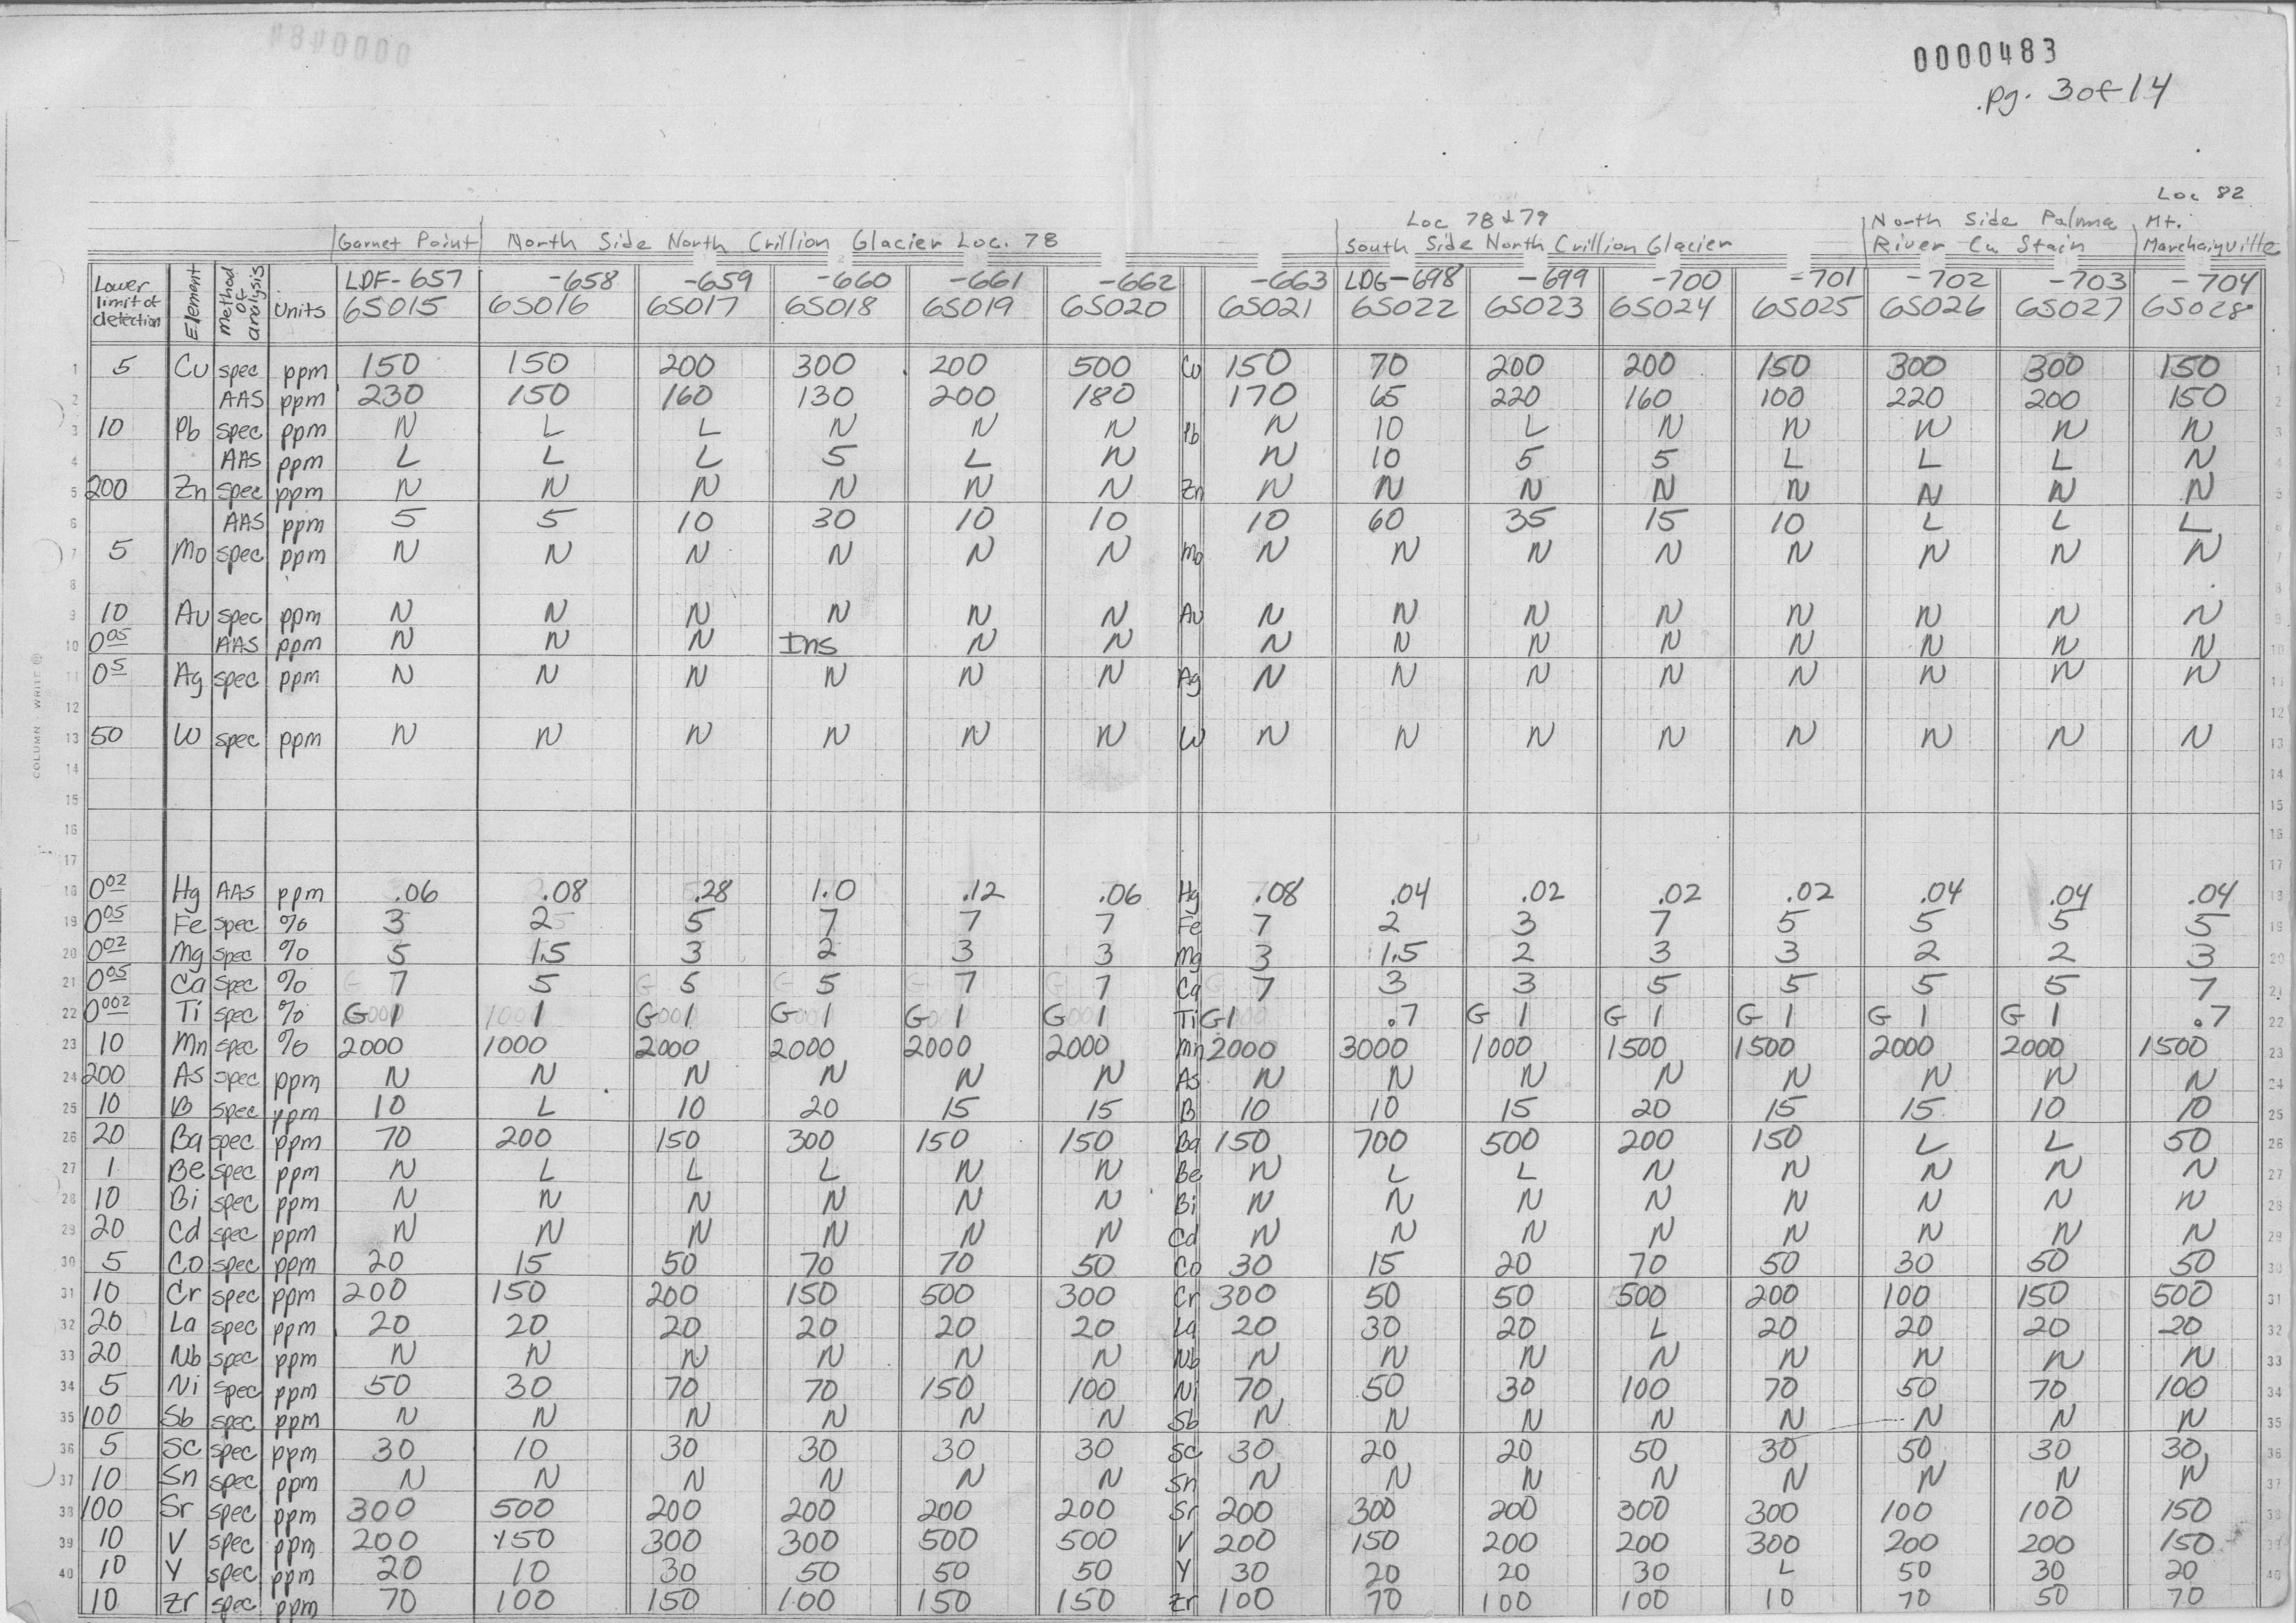 0000483
pg. 3 of 14
Loc 82
Loc 78 & 79 North Side Palma Mt.
Garnet Point North Side North Crillion Glacier Loc. 78 South Side North Crillion Glacier River Cu Stain
Lower limit of detection Element Method of analysis Units LDF-657 -658 -659 -660 -661 -662 -663 LDG-698 -699 -700 -701 -702 -703 -704
6S015 6S016 6S017 6S018 6S019 6S020 6S021 6S022 6S023 6S024 6S025 6S026 6S027 6S028
1 5 Cu spec ppm 150 150 200 300 200 500 Cu 150 70 200 200 150 300 300 150 1
2 AAS ppm 230 150 160 130 200 180 170 65 220 160 100 220 200 150 2
3 10 Pb spec ppm N L L N N N Pb N 10 L N N N N N 3
4 AAS ppm L L L 5 L N N 10 5 5 L L L N 4
5 200 Zn spec ppm N N N N N N Zn N N N N N N N N 5
6 AAS ppm 5 5 10 30 10 10 10 60 35 15 10 L L L 6
7 5 Mo spec ppm N N N N N N Mo N N N N N N N N 7
8 8
9 10 Au spec ppm N N N N N N Au N N N N N N N N 9
10 0.05 AAS ppm N N N Ins N N N N N N N N N N 10
11 0.5 Ag spec ppm N N N N N N Ag N N N N N N N N 11
12 12
13 50 W spec ppm N N N N N N W N N N N N N N N 13
14 14
15 15
16 16
17 17
18 0.02 Hg AAS ppm .06 .08 .28 1.0 .12 .06 Hg .08 .04 .02 .02 .02 .04 .04 .04 18
19 0.05 Fe spec % 3 2 5 7 7 7 Fe 7 2 3 7 5 5 5 5 19
20 0.02 Mg spec % 5 1.5 3 2 3 3 Mg 3 1.5 2 3 3 2 2 3 20
21 0.05 Ca spec % 7 5 5 5 7 7 Ca 7 3 3 5 5 5 5 7 21
22 0.002 Ti spec % G 1 1 G 1 G 1 G 1 G 1 Ti G 1 .7 G 1 G 1 G 1 G 1 G 1 .7 22
23 10 Mn spec % 2000 1000 2000 2000 2000 2000 Mn 2000 3000 1000 1500 1500 2000 2000 1500 23
24 200 As spec ppm N N N N N N As N N N N N N N N 24
25 10 B spec ppm 10 L 10 20 15 15 B 10 10 15 20 15 15 10 10 25
26 20 Ba spec ppm 70 200 150 300 150 150 Ba 150 700 500 200 150 L L 50 26
27 1 Be spec ppm N L L L N N Be N L L N N N N N 27
28 10 Bi spec ppm N N N N N N Bi N N N N N N N N 28
29 20 Cd spec ppm N N N N N N Cd N N N N N N N N 29
30 5 Co spec ppm 20 15 50 70 70 50 Co 30 15 20 70 50 30 50 50 30
31 10 Cr spec ppm 200 150 200 150 500 300 Cr 300 50 50 500 200 100 150 500 31
32 20 La spec ppm 20 20 20 20 20 20 La 20 30 20 L 20 20 20 20 32
33 20 Nb spec ppm N N N N N N Nb N N N N N N N N 33
34 5 Ni spec ppm 50 30 70 70 150 100 Ni 70 50 30 100 70 50 70 100 34
35 100 Sb spec ppm N N N N N N Sb N N N N N N N N 35
36 5 Sc spec ppm 30 10 30 30 30 30 Sc 30 20 20 50 30 50 30 30 36
37 10 Sn spec ppm N N N N N N Sn N N N N N N N N 37
38 100 Sr spec ppm 300 500 200 200 200 200 Sr 200 300 200 300 300 100 100 150 38
39 10 V spec ppm 200 150 300 300 500 500 V 200 150 200 200 300 200 200 150 39
40 10 Y spec ppm 20 10 30 50 50 50 Y 30 20 20 30 L 50 30 20 40
10 Zr spec ppm 70 100 150 100 150 150 Zr 100 70 100 100 10 70 50 70
COLUMN WRITE